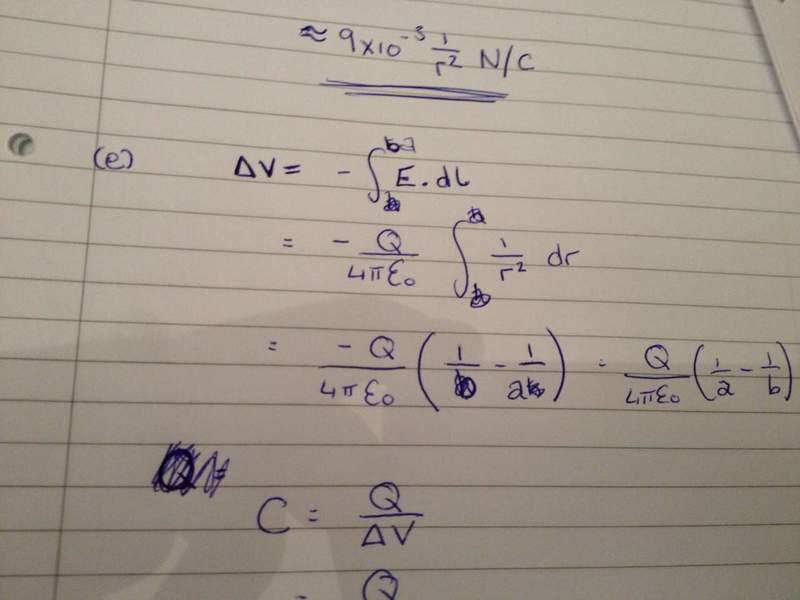 ≈ 9×10⁻³ 1/r² N/C
(e) ΔV = - ∫ E . dL
= - Q/4πε₀ ∫ 1/r² dr
= -Q/4πε₀ (1/b - 1/a) = Q/4πε₀ (1/a - 1/b)
C = Q/ΔV
= Q